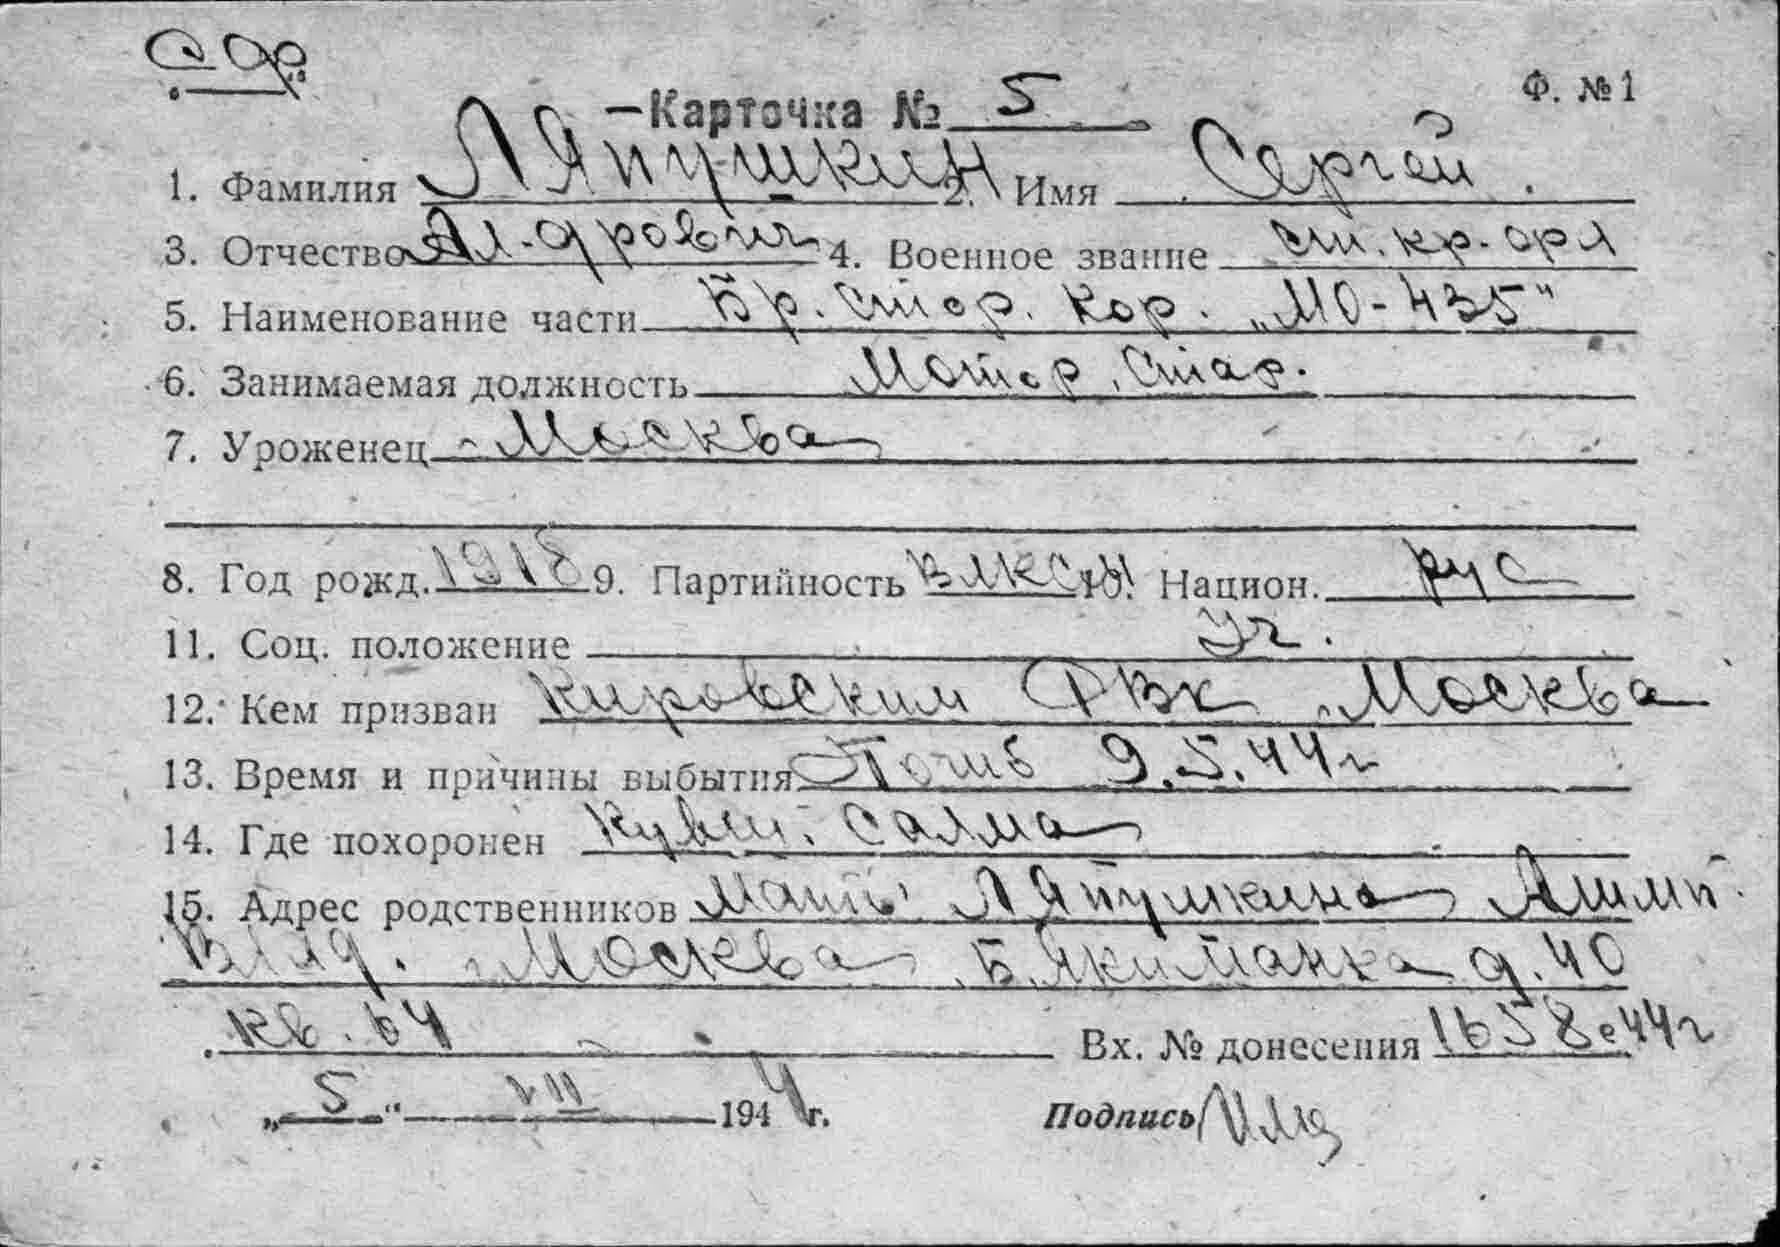 Ф. №1
Карточка № 5
1. Фамилия Ляпушкин 2. Имя Сергей
3. Отчество Ал-дрович 4. Военное звание ст. кр-фл
5. Наименование части Бр. стор. кор. „МО-435"
6. Занимаемая должность Мотор. стар.
7. Уроженец Москва
8. Год рожд. 1918 9. Партийность ВЛКСМ 10. Национ. рус
11. Соц. положение Уч.
12. Кем призван Кировским РВК Москва
13. Время и причины выбытия Погиб 9.5.44г
14. Где похоронен Кувш. Салма
15. Адрес родственников Мать Ляпушкина
Влад. Москва Б. Якиманка д. 40
кв. 64 Вх. № донесения 1658с 44г
„5" VII 1944г. Подпись